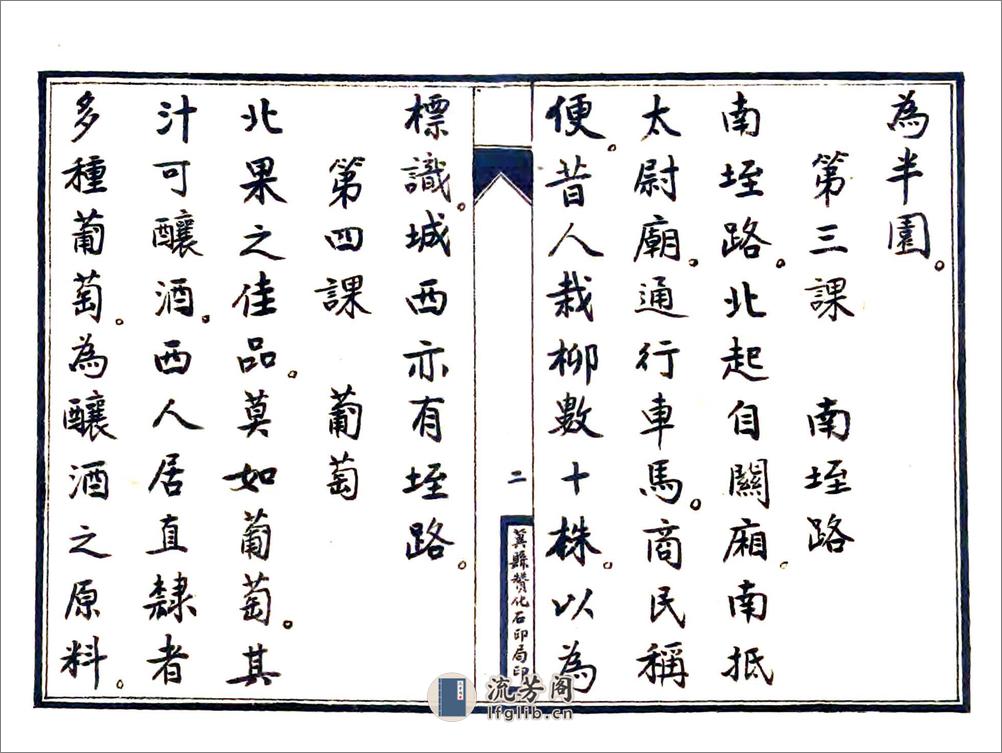 為半園。
第三課　南垤路
南垤路。北起自關廂。南抵
太尉廟。通行車馬。商民稱
便。昔人栽柳數十株。以為
二
冀縣贊化石印局印
標識。城西亦有垤路。
第四課　葡萄
北果之佳品。莫如葡萄。其
汁可釀酒。西人居直隸者
多種葡萄。為釀酒之原料。
流芳阁
lfglib.cn